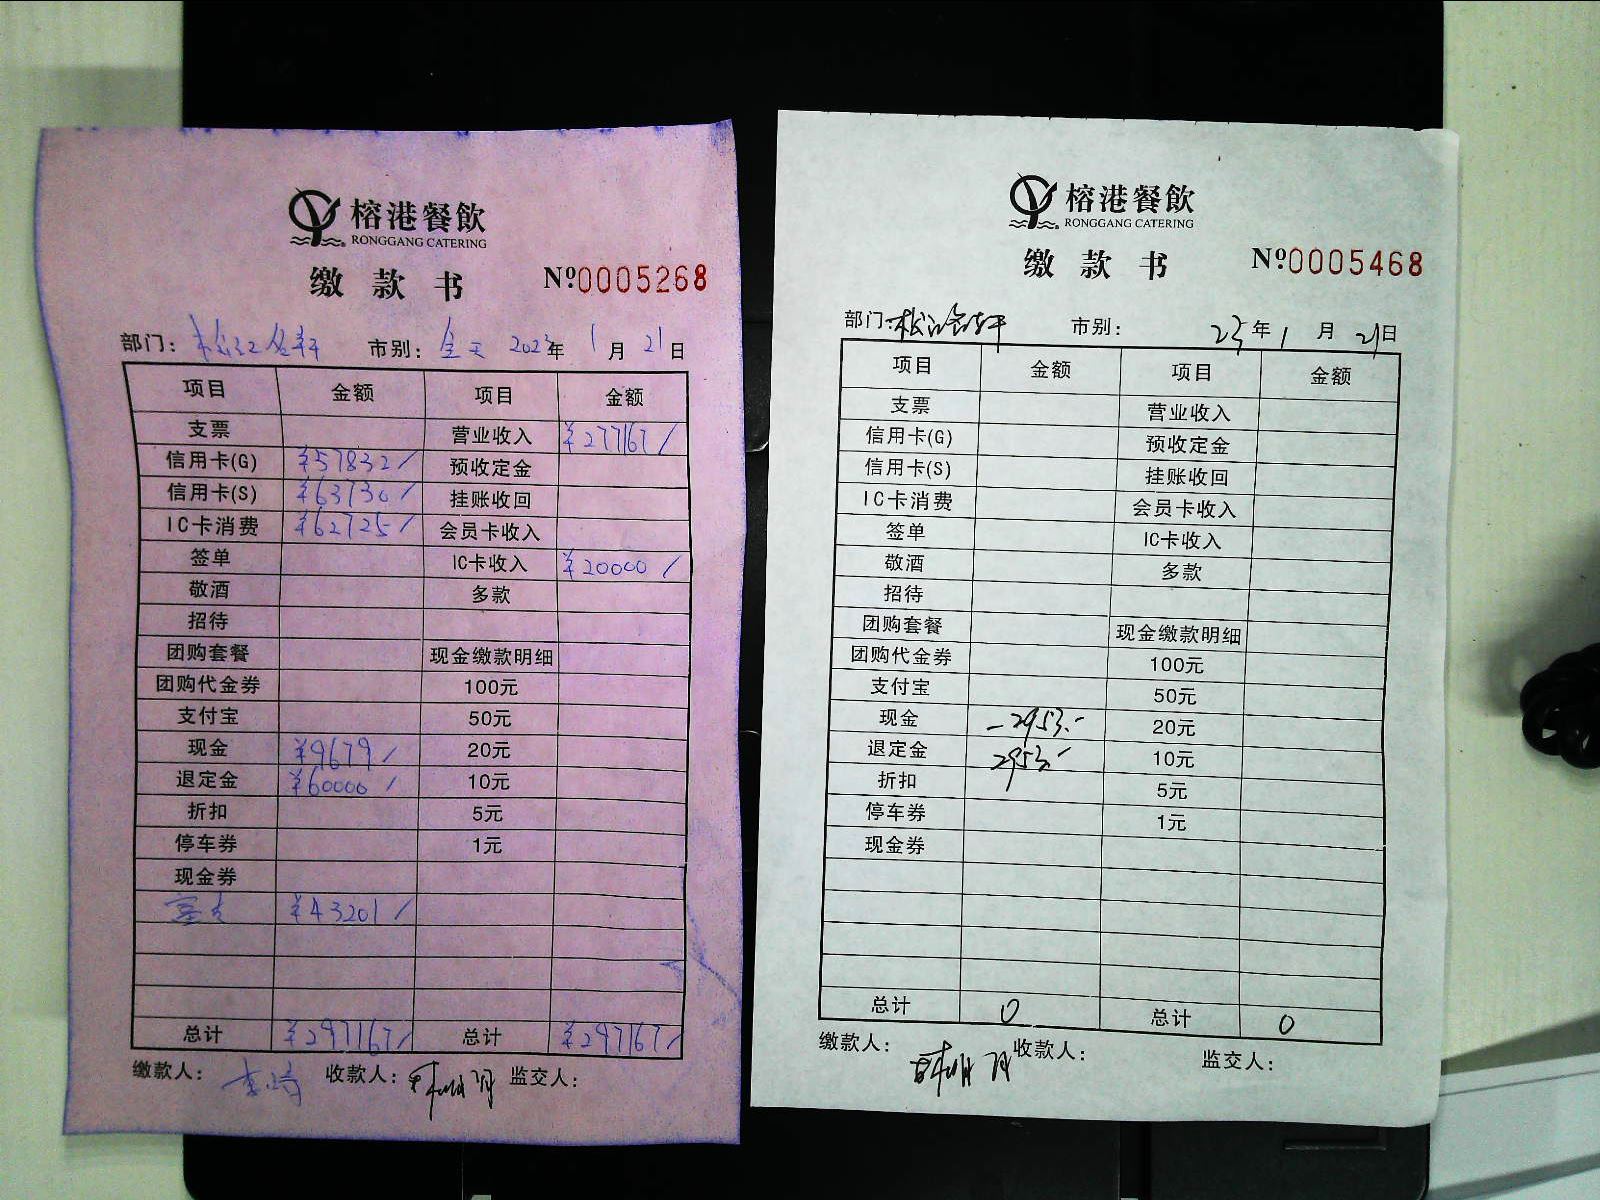 榕港餐飲
RONGGANG CATERING
缴款书 №0005268
部门: 松江 市别: 全天 2023年1月21日
项目 金额 项目 金额
支票 营业收入 ¥277167/
信用卡(G) ¥57832/ 预收定金
信用卡(S) ¥63730/ 挂账收回
IC卡消费 ¥62725/ 会员卡收入
签单 IC卡收入 ¥20000/
敬酒 多款
招待
团购套餐 现金缴款明细
团购代金券 100元
支付宝 50元
现金 ¥9679/ 20元
退定金 ¥60000/ 10元
折扣 5元
停车券 1元
现金券
¥43201/
总计 ¥297167/ 总计 ¥297167/
缴款人: 收款人: 监交人:
榕港餐飲
RONGGANG CATERING
缴款书 №0005468
部门: 松江 市别: 23年1月21日
项目 金额 项目 金额
支票 营业收入
信用卡(G) 预收定金
信用卡(S) 挂账收回
IC卡消费 会员卡收入
签单 IC卡收入
敬酒 多款
招待
团购套餐 现金缴款明细
团购代金券 100元
支付宝 50元
现金 -2953.- 20元
退定金 2953.- 10元
折扣 5元
停车券 1元
现金券
总计 0 总计 0
缴款人: 收款人: 监交人: